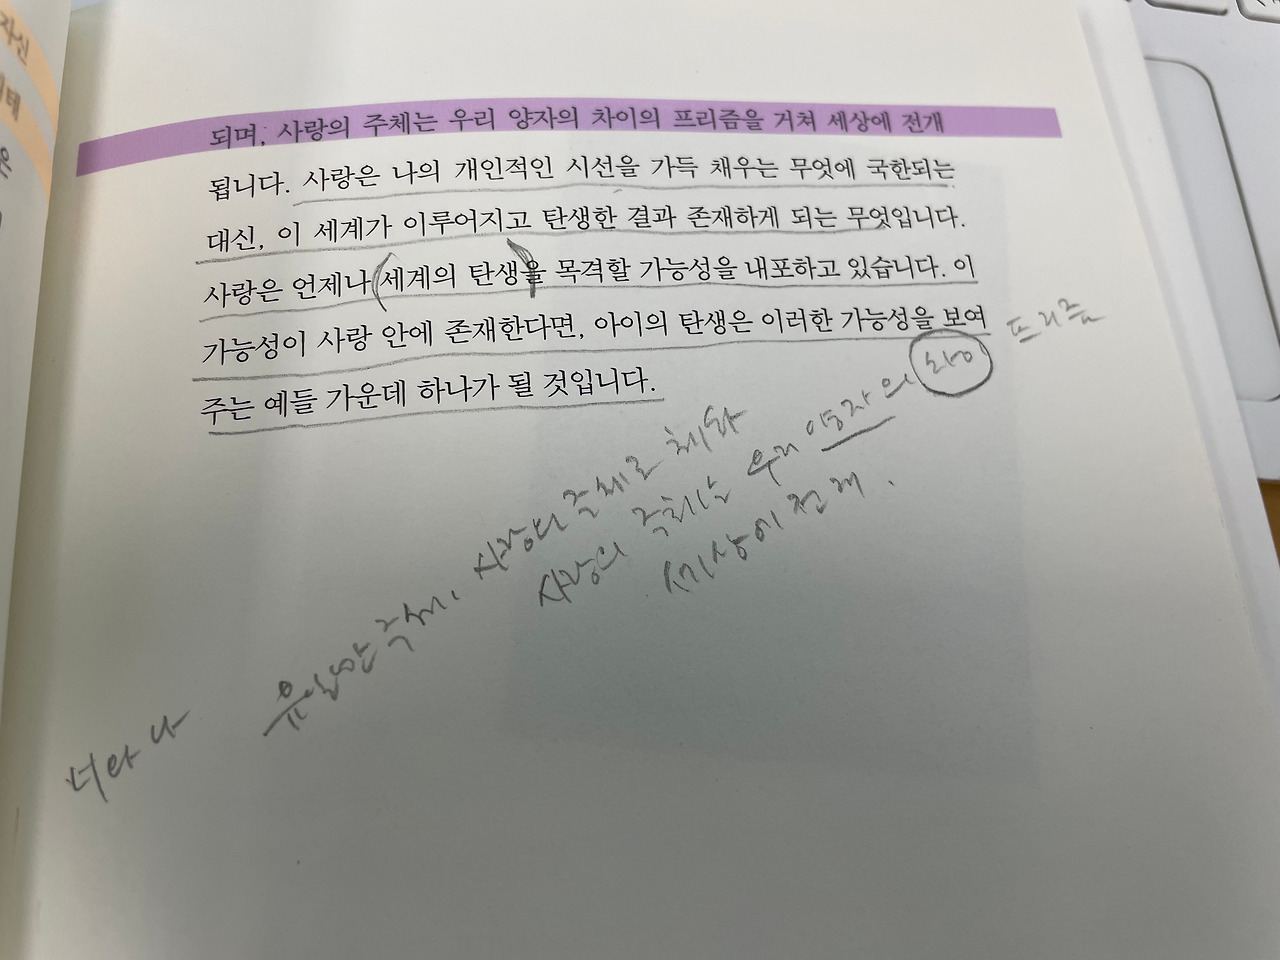 자신
되며, 사랑의 주체는 우리 양자의 차이의 프리즘을 거쳐 세상에 전개
됩니다. 사랑은 나의 개인적인 시선을 가득 채우는 무엇에 국한되는
대신, 이 세계가 이루어지고 탄생한 결과 존재하게 되는 무엇입니다.
사랑은 언제나 세계의 탄생을 목격할 가능성을 내포하고 있습니다. 이
가능성이 사랑 안에 존재한다면, 아이의 탄생은 이러한 가능성을 보여
주는 예들 가운데 하나가 될 것입니다.
너와 나 유일한 주체, 사랑의 주체로
사랑의 주체는 우리 양자의 차이 프리즘
세상에 전개.